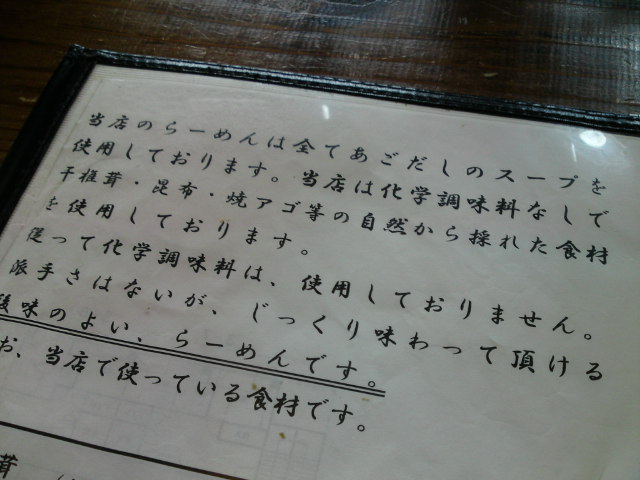 当店のらーめんは全てあごだしのスープを
使用しております。当店は化学調味料なしで
干椎茸・昆布・焼アゴ等の自然から採れた食材
を使用しております。
従って化学調味料は、使用しておりません。
派手さはないが、じっくり味わって頂ける
後味のよい、らーめんです。
お、当店で使っている食材です。
茸